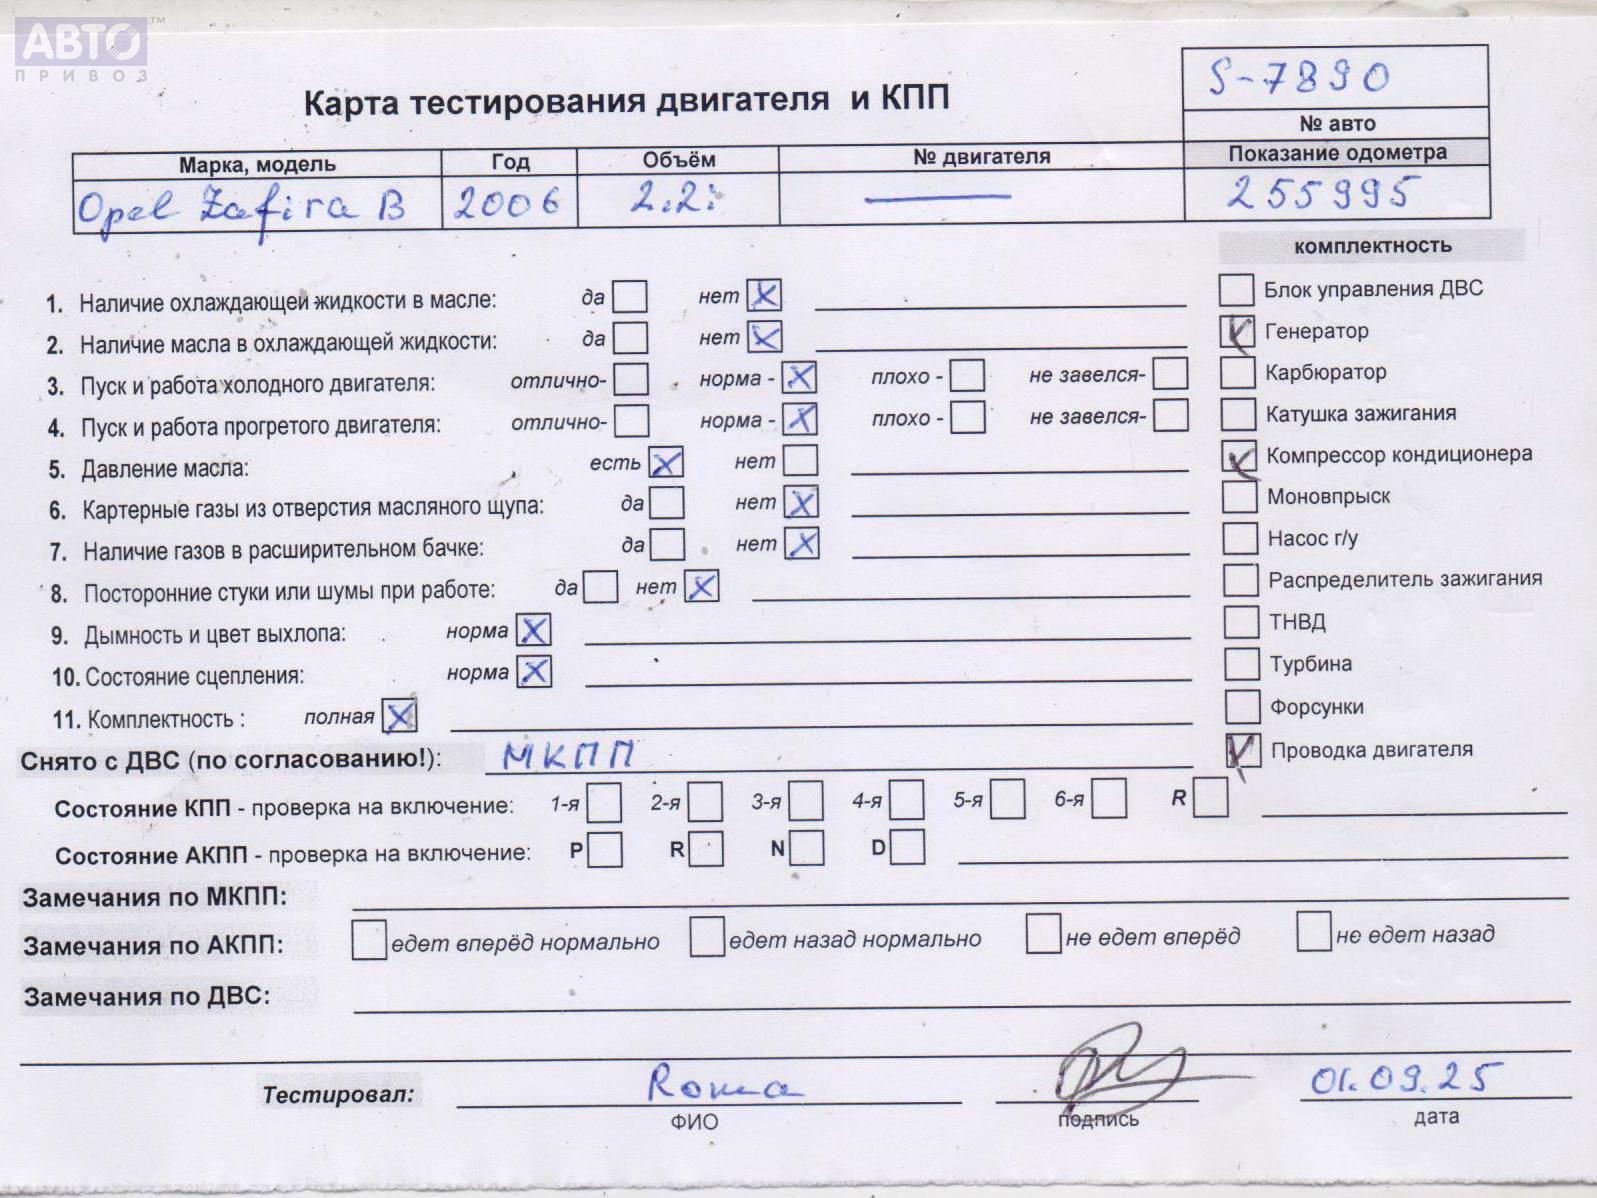 АВТО ™
ПРИВОЗ
S-7890
Карта тестирования двигателя и КПП
№ авто
Марка, модель Год Объём № двигателя Показание одометра
Opel Zafira B 2006 2.2i — 255995
комплектность
1. Наличие охлаждающей жидкости в масле: да нет X
Блок управления ДВС
2. Наличие масла в охлаждающей жидкости: да нет X
Генератор
3. Пуск и работа холодного двигателя: отлично- норма - X плохо - не завелся-
Карбюратор
4. Пуск и работа прогретого двигателя: отлично- норма - X плохо - не завелся-
Катушка зажигания
5. Давление масла: есть X нет
Компрессор кондиционера
6. Картерные газы из отверстия масляного щупа: да нет X
Моновпрыск
7. Наличие газов в расширительном бачке: да нет X
Насос г/у
8. Посторонние стуки или шумы при работе: да нет X
Распределитель зажигания
9. Дымность и цвет выхлопа: норма X
ТНВД
10. Состояние сцепления: норма X
Турбина
11. Комплектность : полная X
Форсунки
Снято с ДВС (по согласованию!): МКПП
Проводка двигателя
Состояние КПП - проверка на включение: 1-я 2-я 3-я 4-я 5-я 6-я R
Состояние АКПП - проверка на включение: P R N D
Замечания по МКПП:
Замечания по АКПП: едет вперёд нормально едет назад нормально не едет вперёд не едет назад
Замечания по ДВС:
Тестировал: Рома 01.09.25
ФИО подпись дата